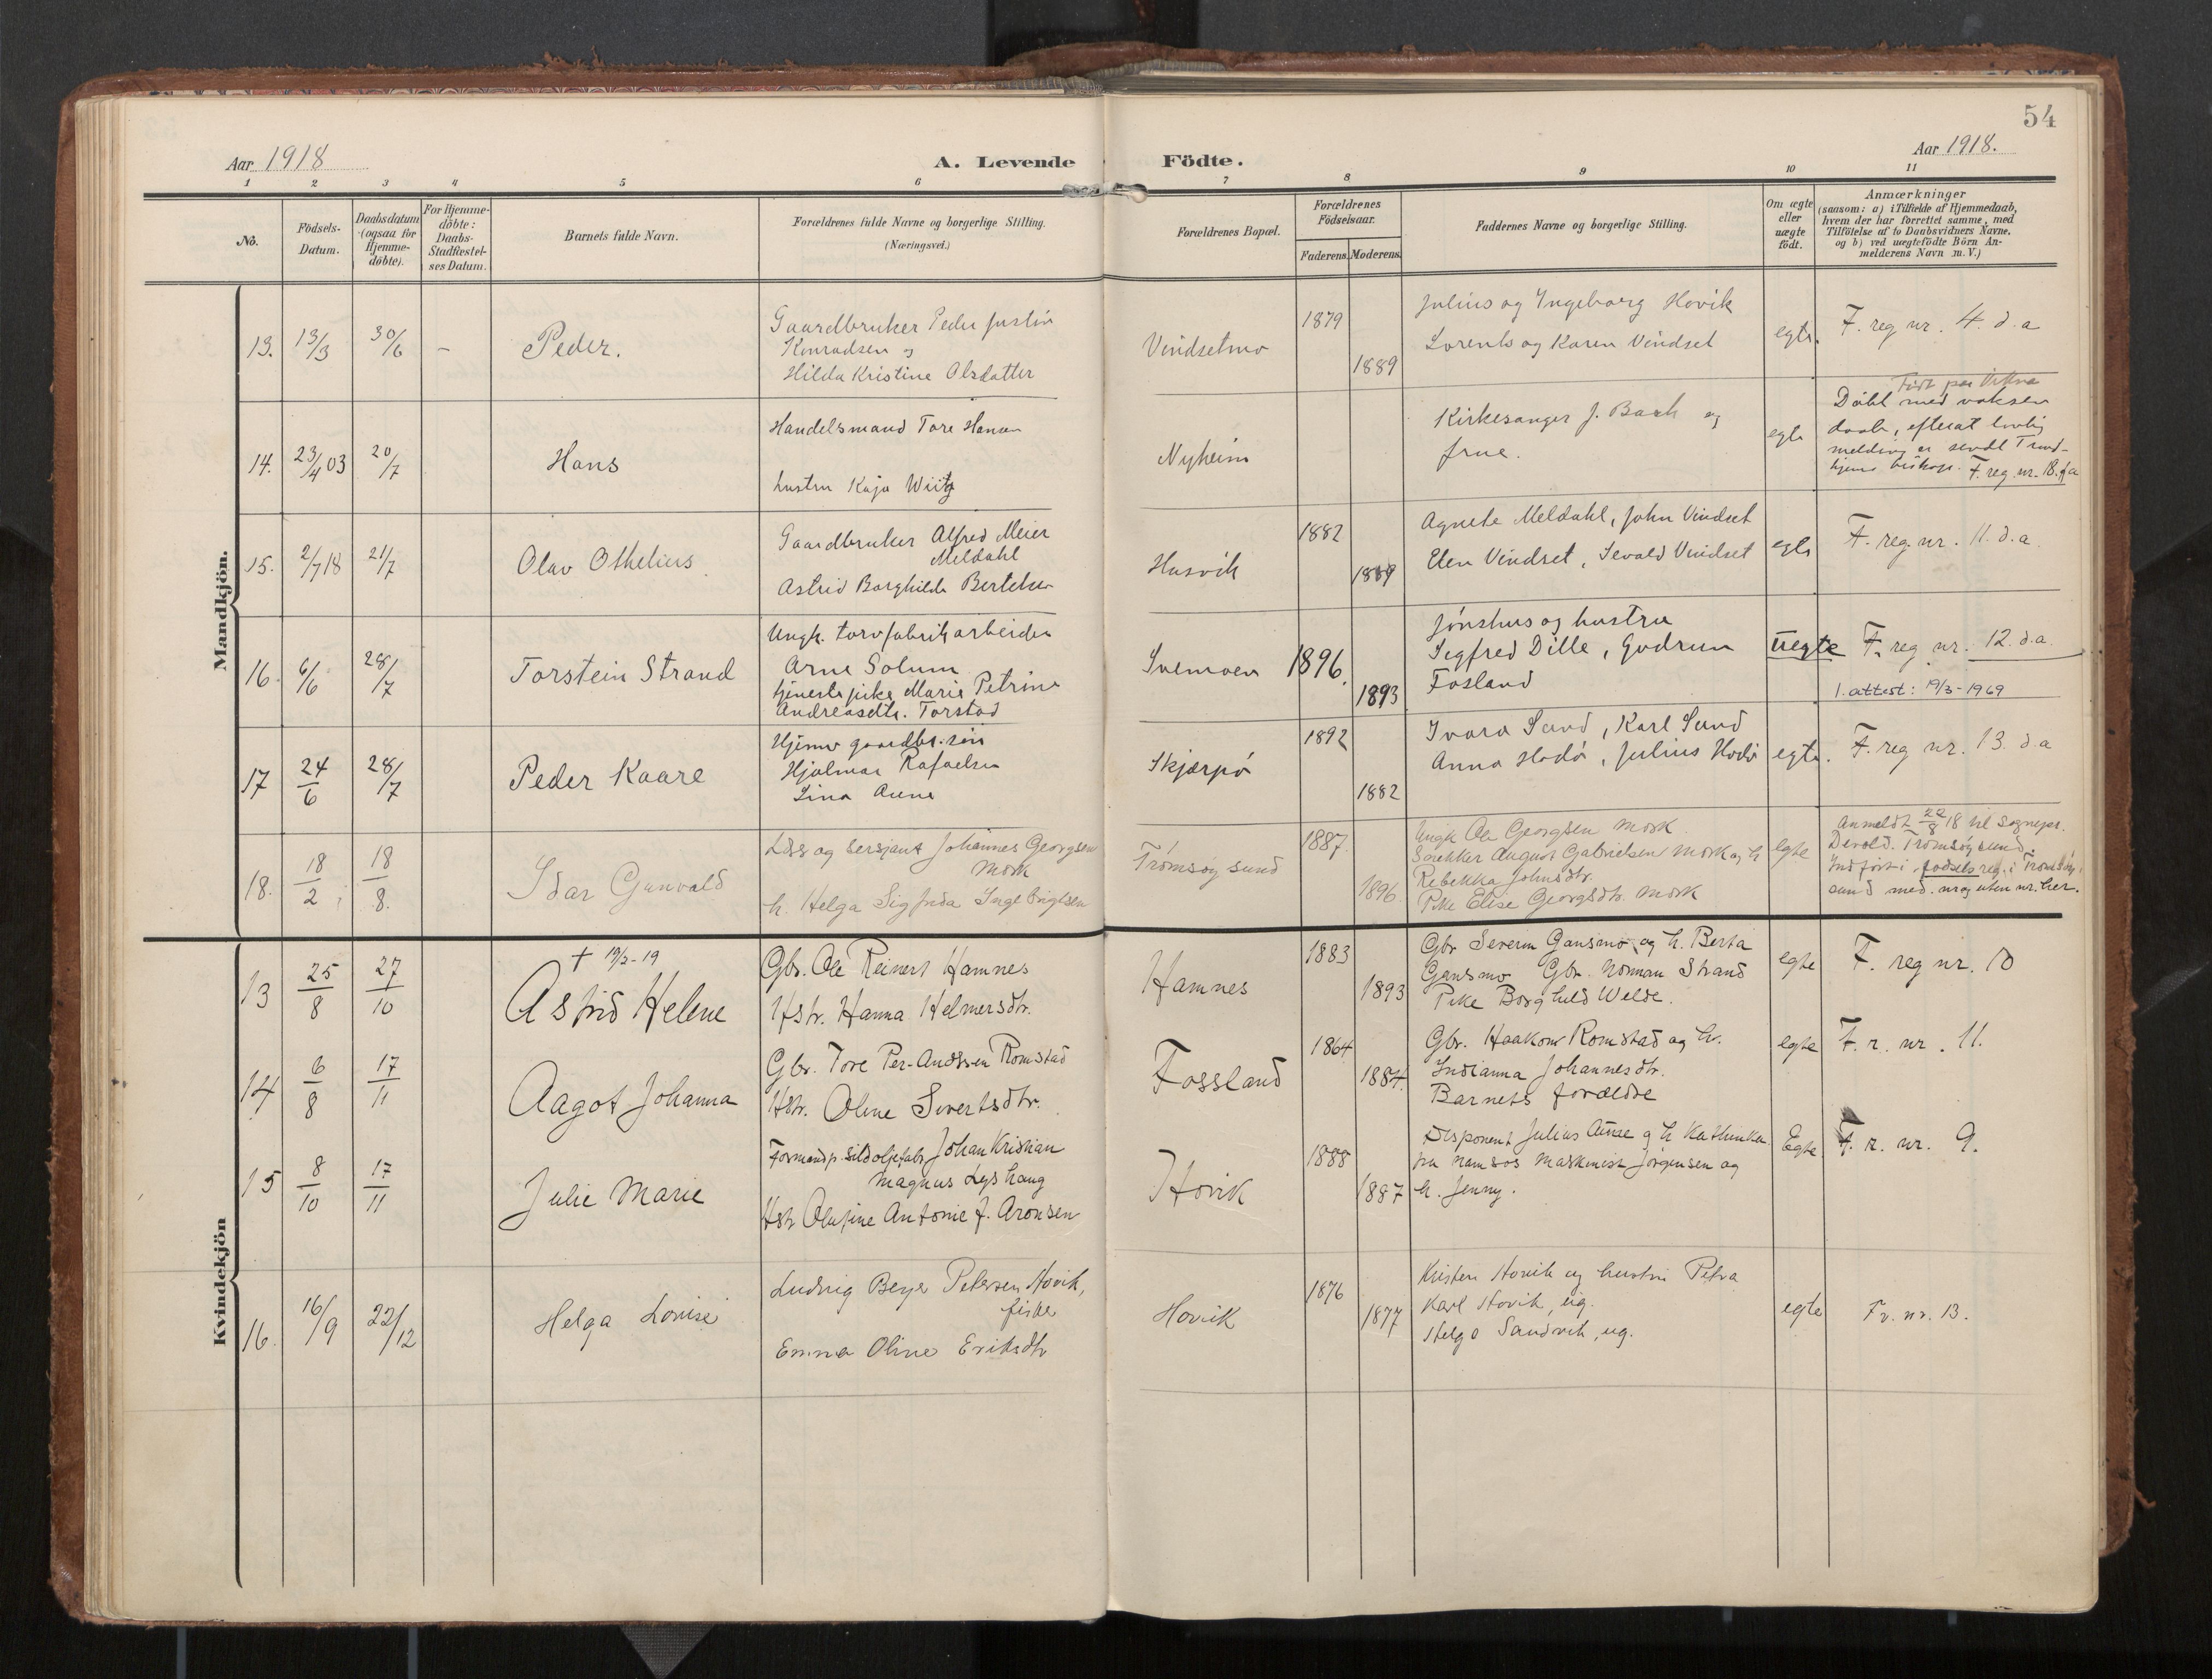 54
Aar 1918
A. Levende Födte.
Aar 1918.
1 2 3 4 5 6 7 8 9 10 11
No.
Födsels-
Datum.
Daabsdatum
(ogsaa for
Hjemme-
döbte).
For Hjemme-
döbte:
Daabs-
Stadfæstel-
ses Datum.
Barnets fulde Navn.
Forældrenes fulde Navne og borgerlige Stilling.
(Næringsvei.)
Forældrenes Bopæl.
Forældrenes
Födselsaar.
Faderens. Moderens.
Faddernes Navne og borgerlige Stilling.
Om ægte
eller
uægte
födt.
Anmærkninger
(saasom: a) i Tilfælde af Hjemmedaab,
hvem der har forrettet samme, med
Tilföielse af to Daabsvidners Navne,
og b) ved uægtefödte Börn An-
melderens Navn m. V.)
Mandkjön.
13. 13/3 30/6 – Peder.
Gaardbruker Peder Justin
Konradsen og
Hilda Kristine Olsdatter
Vindsetmo
1879
1889
Julius og Ingeborg Hovik
Lorents og Karen Vindset
egte.
F. reg nr. 4. d.a
14. 23/4 03 20/7 Hans
Handelsmand Tore Hansen
hustru Kaja Wiig
Nyheim
Kirkesanger J. Bach og
frue.
egte
Døbt med voksen
daab, efterat lovlig
melding er sendt Trond-
hjems biskop. F. reg. nr. 18. d a
15. 2/7 18 21/7 Olav Othelius
Gaardbruker Alfred Meier
Meldahl
Astrid Borghilde Bertelsen
Husvik
1882
1889
Agnete Meldahl, John Vindset
Elen Vindset, Sevald Vindset
egte
F. reg. nr. 11. d.a.
16. 6/6 28/7 Torstein Strand
Ungk. torvfabrikarbeider
Arne Solum
tjenestepike Marie Petrine
Andreasdtr. Torstad
Svemoen
1896.
1893
Jønshus og hustru
Segfred Dille, Gudrun
Fosland
uegte
F. reg. nr. 12. d.a.
1. attest: 19/3-1969
17 24/6 28/7 Peder Kaare
Hjemv gaardbr. søn
Hjalmar Rafaelsen
Lina Aune
Skjærpø
1892
1882
Ivara Sund, Karl Sund
Anna Hodø, Julius Hodø
egte.
F. reg nr. 13. d.a
18. 18/2 18/8. Idar Gunvald
Lds og sersjant Johannes Georgsen
Mork
h. Helga Sigfrida Ingebrigtsen
Tromsøysund
1887.
1896.
Ungk Ole Georgsen Mork.
Snekker August Gabrielsen Mork og h
Rebekka Johnsdtr.
Pike Elise Georgsdtr. Mork
egte
Anmeldt 22/8 18 til sognepr.
Devold. Tromsøysund.
Indført i fødselsreg. i Tromsøy-
sund med. nr og uten nr. her.
Kvindekjön
13 25/8 27/10 † 19/2-19
Astrid Helene
Gbr. Ole Reinert Hamnes
Hstr. Hanna Helmersdtr.
Hamnes
1883
1893
Gbr Severin Gansmo og h. Berta
Gansmo Gbr. Norman Strand
Pike Borghild Welde.
egte
F. reg nr. 10
14 6/8 17/11 Aagot Johanna
Gbr. Tore Per-Andssen Romstad
Hstr. Oline Sivertsdtr.
Fossland
1864
1884.
Gbr. Haakon Romstad og h.
Indianna Johannesdtr.
Barnets forældre
egte
F. r. nr. 11.
15 8/10 17/11 Julie Marie
Formand p. sildoljefabr Johan Kristian
Magnus Lyshaug
Hstr Olufine Antonie J. Aronsen
Hovik
1888
1887
Disponent Julius Aune og h Kathinka
fra Namsos Maskinist Jørgensen og
h. Jenny.
Egte
F. r. nr. 9.
16. 16/9 22/12 Helga Lovise
Ludvig Beyer Petersen Hovik,
fisker
Emma Oline Eriksdtr
Hovik
1876
1877
Kristen Hovik og hustru Petra
Karl Hovik, ug.
Helga Sandvik, ug.
egte
Fr. nr. 13.